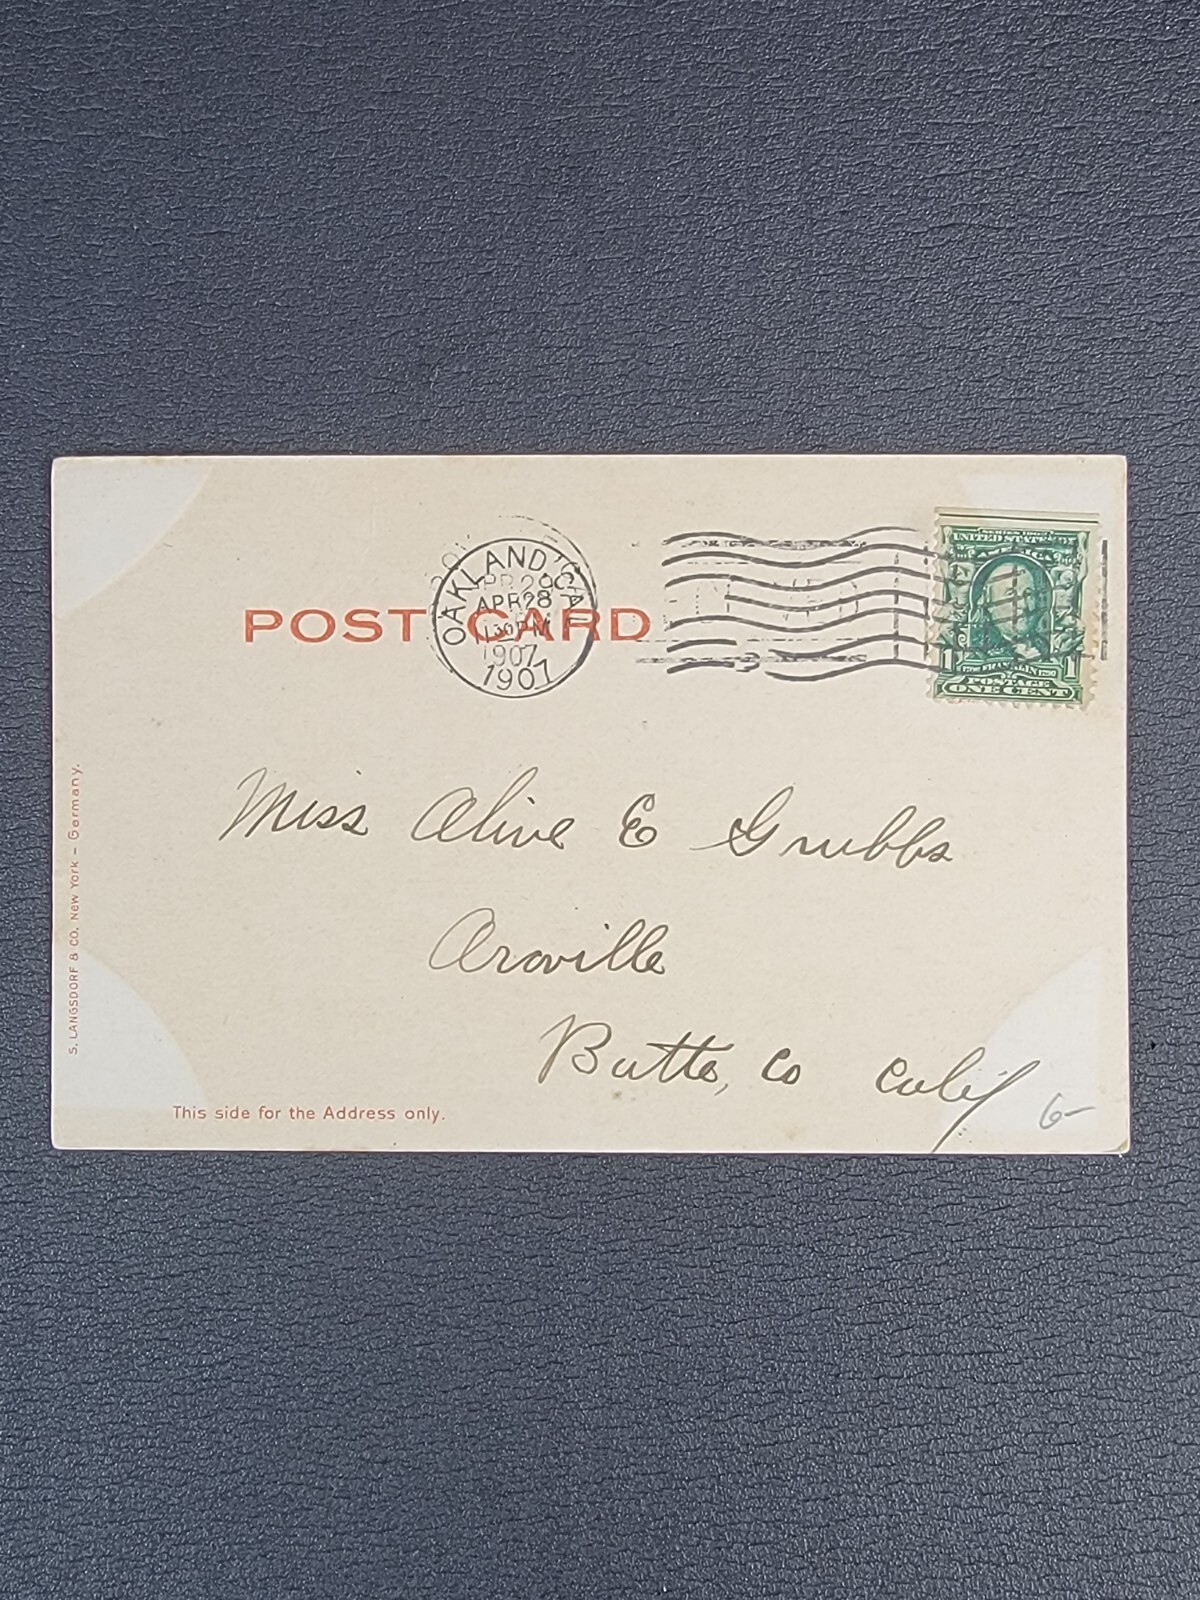 POST CARD
OAKLAND CAL
APR 28
1130 PM
1907
1907
SERIES 1902
UNITED STATES OF
AMERICA
1 FRANKLIN 1
POSTAGE
ONE CENT
Miss Olive E Grubbs
Oroville
Butte, Co Calif
6-
S. LANGSDORF & CO. New York – Germany.
This side for the Address only.